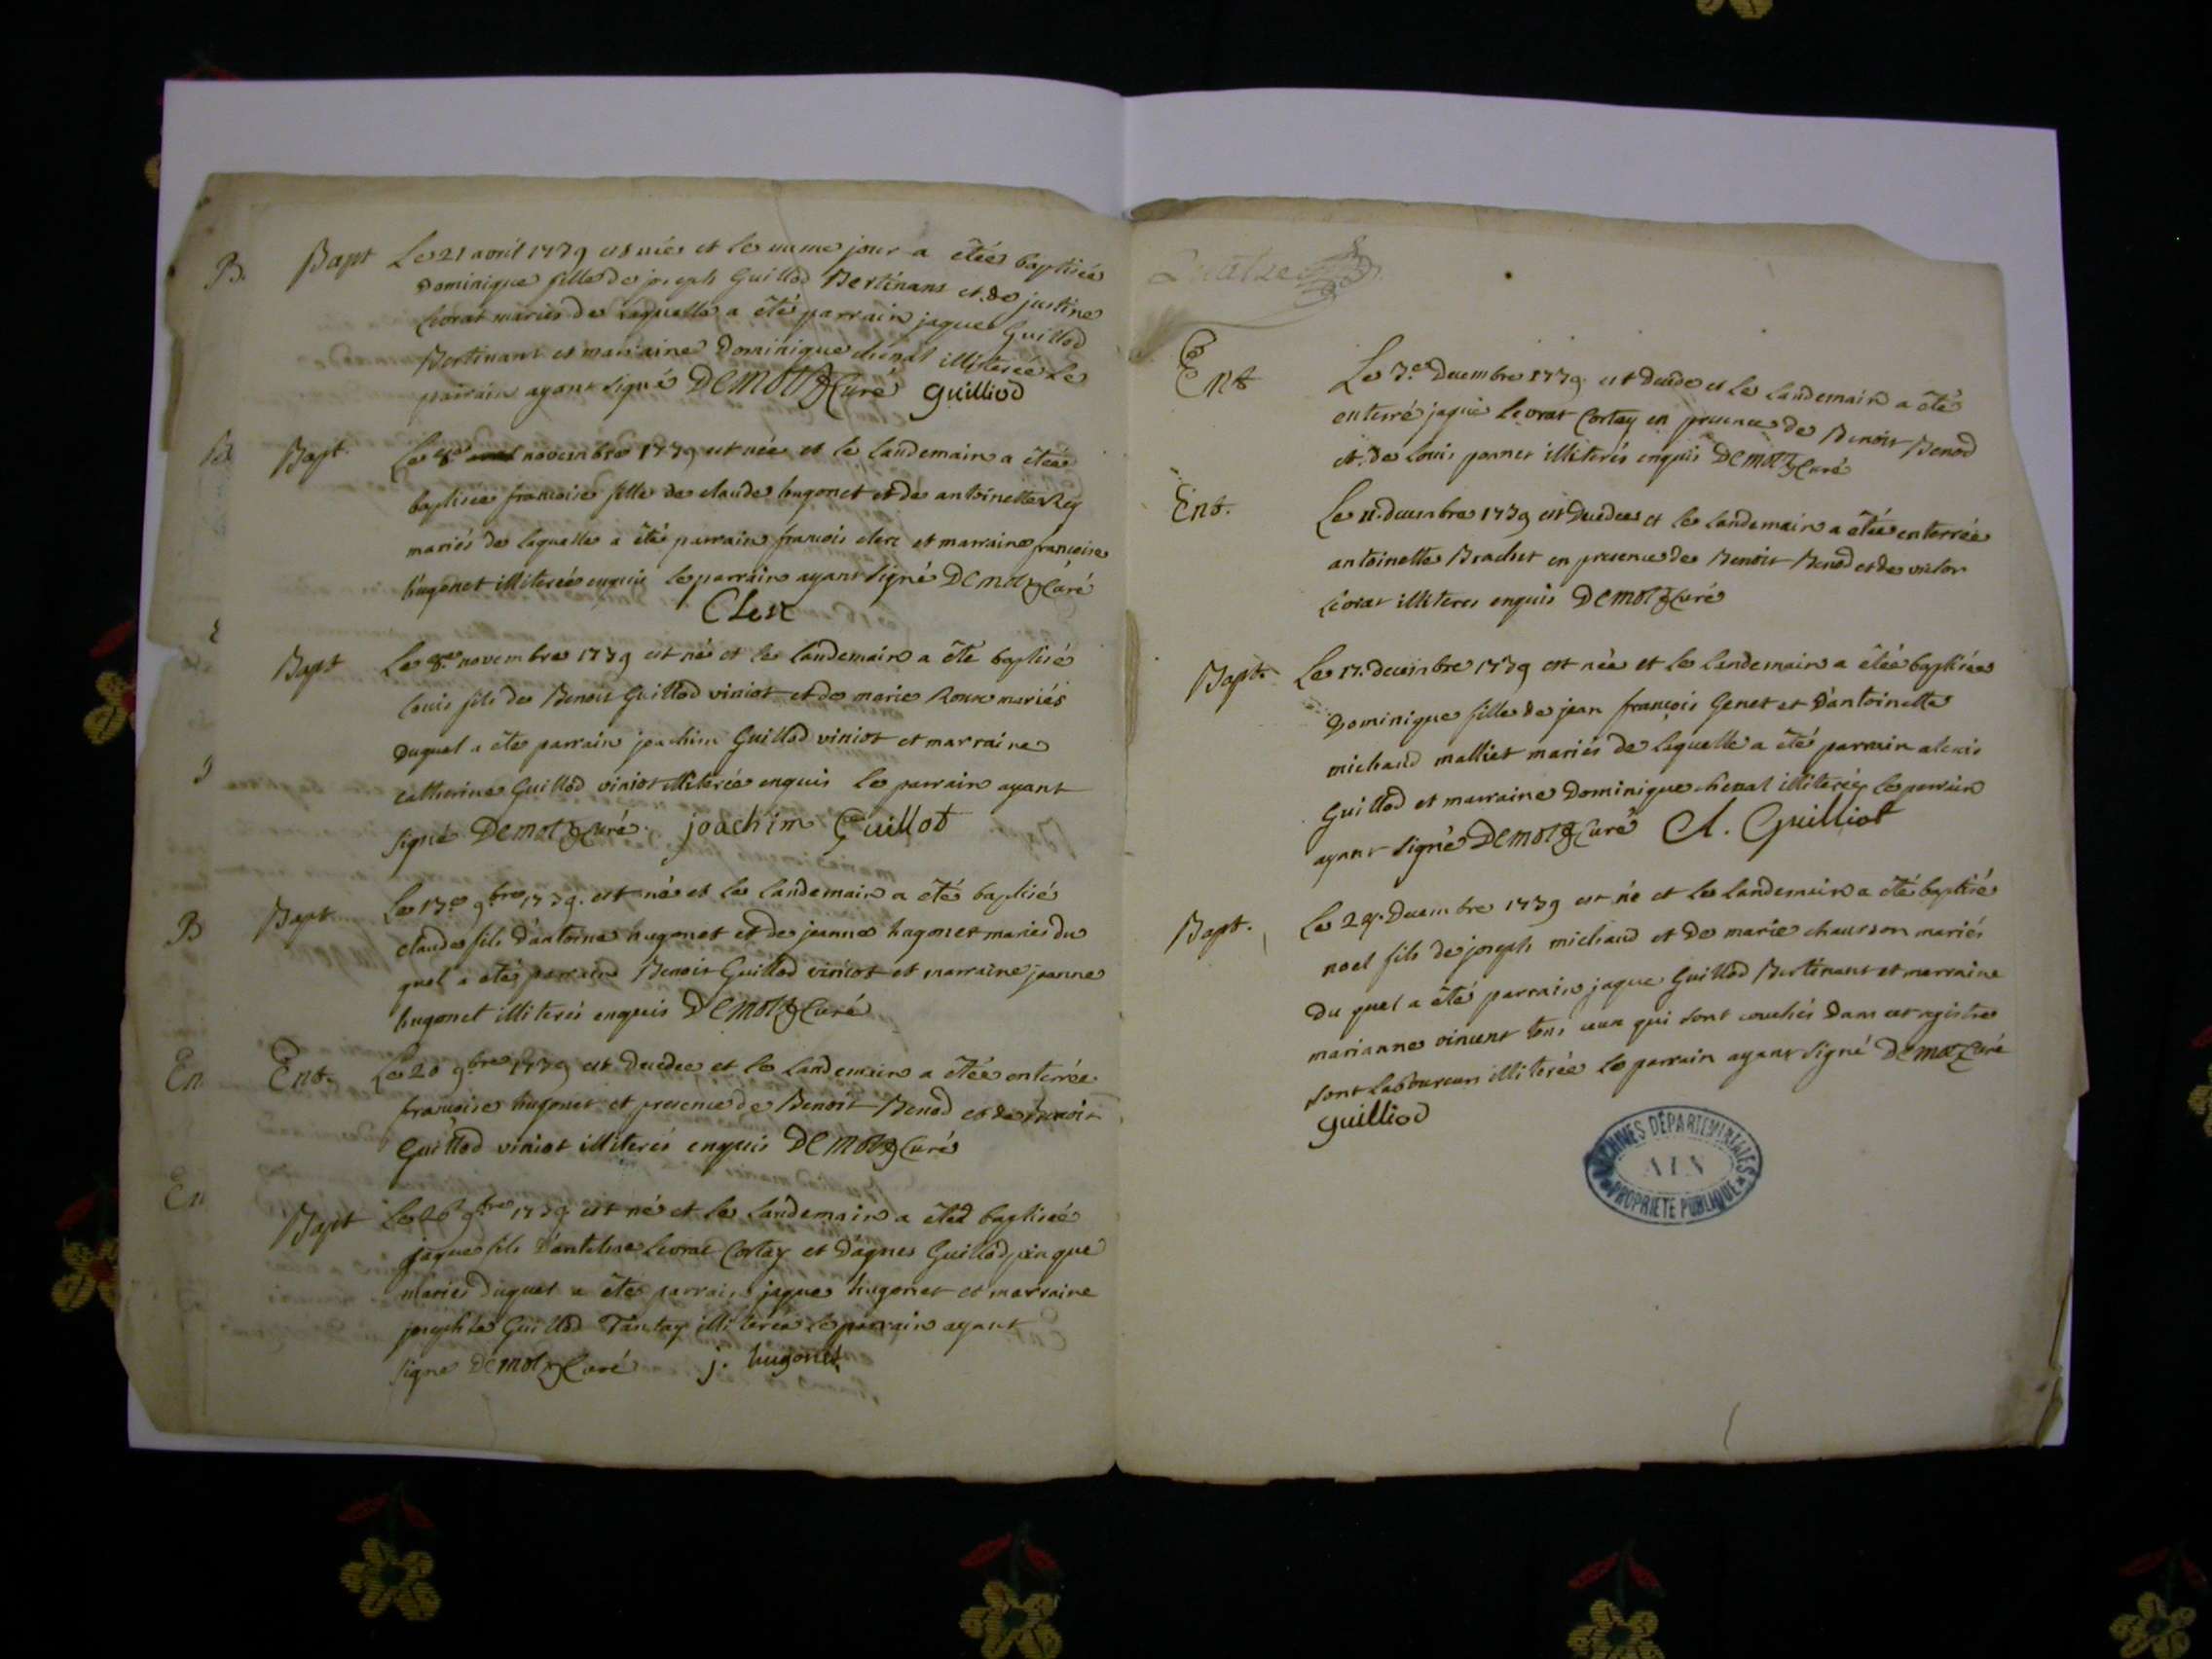 B.
Bapt Le 21 avril 1739 est née et le meme jour a étée baptisée
Dominique fille de joseph Guillod Bertinant et de justine
Levrat mariés de laquelle a été parrain jaque Guillod
Bertinant et marraine Dominique chenal illiterée Le
parrain ayant signé Demotz Curé guilliod
B
Bapt. Le 8e novembre 1739 est née et le landemain a étée
baptisée francoise fille de claude hugonet et de antoinette Rey
mariés de laquelle a été parrain francois clerc et marraine francoise
hugonet illiterée enquis le parrain ayant signé Demotz Curé
Clerc
Bapt Le 8e novembre 1739 est né et le landemain a été baptisé
Louis fils de Benoit Guillod viniot et de marie Roux mariés
Duquel a été parrain joachim Guillod viniot et marraine
catherine Guillod viniot illiterée enquis le parrain ayant
signé Demotz Curé. joachim Guillot
B
Bapt. Le 13e 9bre 1739. est né et le landemain a été baptisé
claude fils D'antoine hugonet et de jeanne hugonet mariés du
quel a été parrain Benoit Guillod viniot et marraine jeanne
hugonet illiterés enquis Demotz Curé
En
Ent. Le 20 9bre 1739 est Decedee et le landemain a étée enterrée
francoise hugonet et presence de Benoit Benod et de benoit
Guillod viniot illiterés enquis Demotz Curé
En
Bapt Le 26 9bre 1739 est né et le landemain a été baptisé
jaque fils D'antelme Levrat Cortay et Dagnes Guillod pinque
mariés duquel a été parrain jaque hugonet et marraine
josephte Guillod Tantay illiterée le parrain ayant
signé Demotz Curé j. hugonet
Quatre
Ent Le 3e Decembre 1739. est Decede et le landemain a été
enterré jaque Levrat Cortay en presence de Benoit Benod
et de Louis pernet illiterés enquis Demotz Curé
Ent. Le 11. decembre 1739 est Decedee et le landemain a étée enterrée
antoinette Brachet en presence de Benoit Benod et de victor
Levrat illiteres enquis Demotz Curé
Bapt. Le 17. decembre 1739 est née et le landemain a étée baptisée
Dominique fille de jean françois Genet et D'antoinette
michaud malliet mariés de laquelle a été parrain alexis
Guillod et marraine Dominique chenal illiterée le parrain
ayant signé Demotz Curé A. Guilliot
Bapt. Le 24. Decembre 1739 est né et le landemain a été baptisé
noel fils de joseph michaud et de marie chaurson mariés
Du quel a été parrain jaque Guillod Bertinant et marraine
marianne vincent tous ceux qui sont couchés dans cet registre
sont Laboureurs illiterée le parrain ayant signé Demotz Curé
guilliod
ARCHIVES DÉPARTEMENTALES
AIN
PROPRIÉTÉ PUBLIQUE